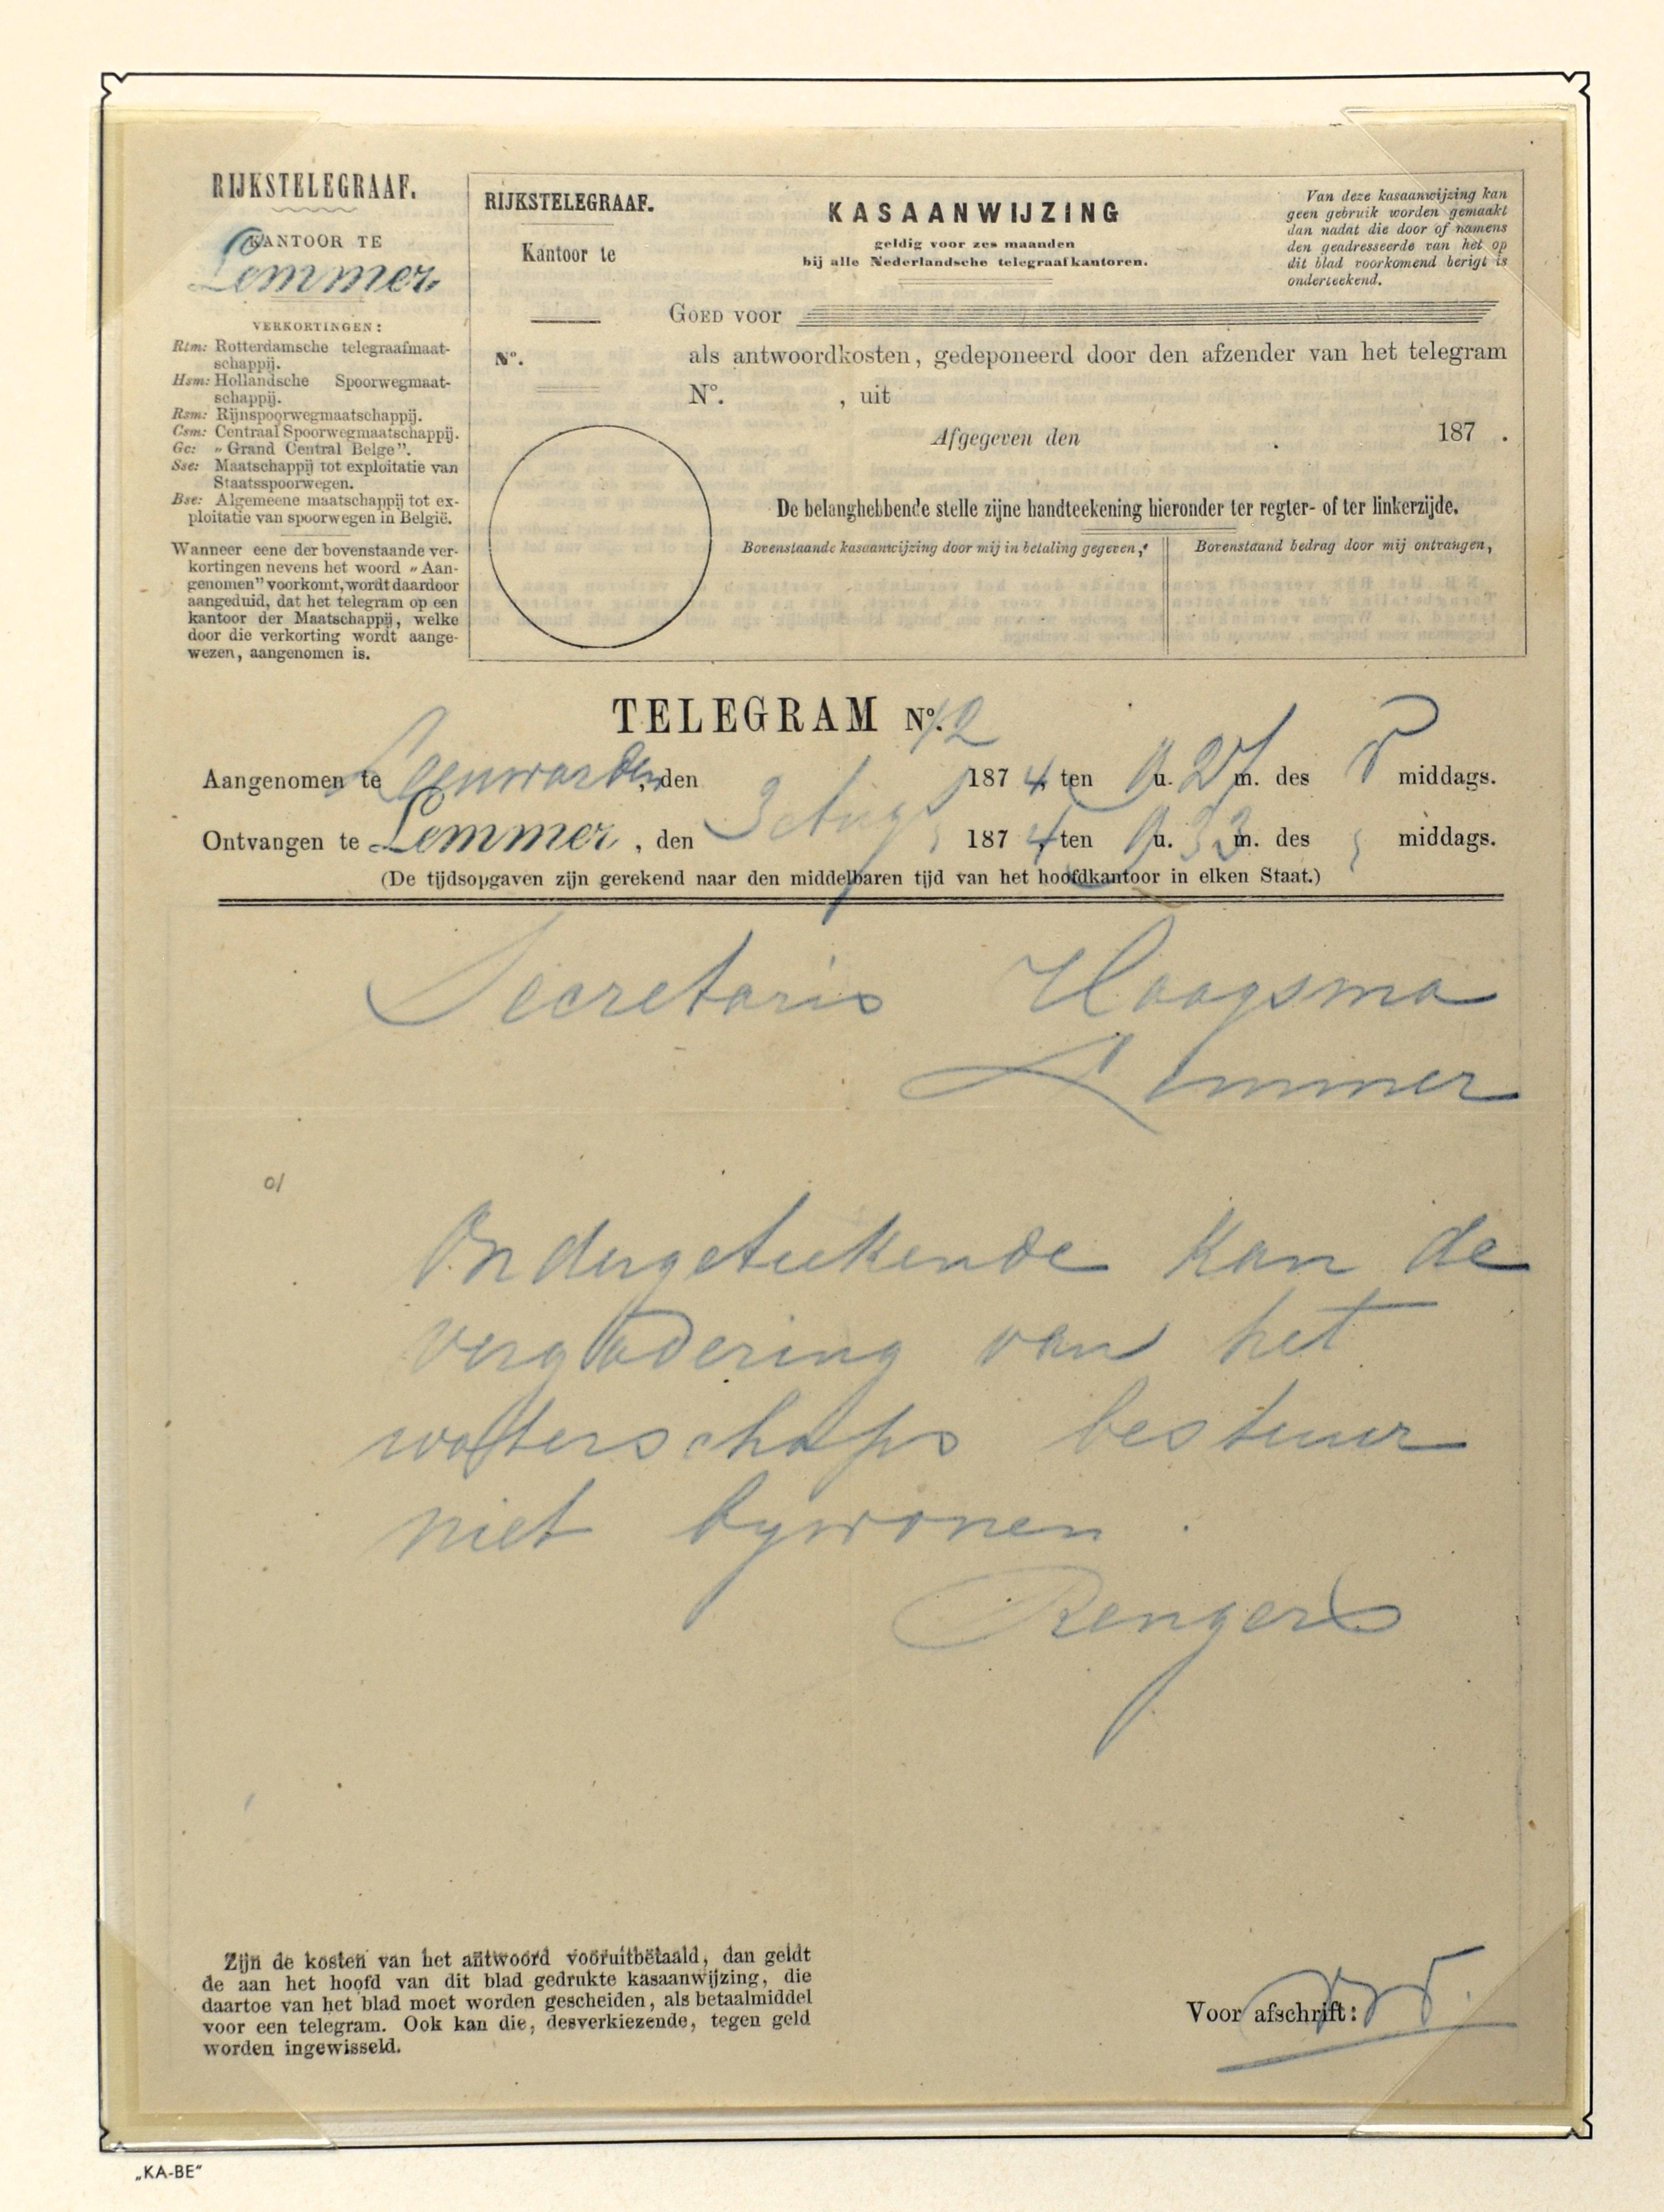 RIJKSTELEGRAAF.
KANTOOR TE
Lemmer
VERKORTINGEN:
Rtm: Rotterdamsche telegraafmaat-
schappij.
Hsm: Hollandsche Spoorwegmaat-
schappij.
Rsm: Rijnspoorwegmaatschappij.
Csm: Centraal Spoorwegmaatschappij.
Gc: „Grand Central Belge”.
Sse: Maatschappij tot exploitatie van
Staatsspoorwegen.
Bse: Algemeene maatschappij tot ex-
ploitatie van spoorwegen in België.
Wanneer eene der bovenstaande ver-
kortingen nevens het woord „Aan-
genomen” voorkomt, wordt daardoor
aangeduid, dat het telegram op een
kantoor der Maatschappij, welke
door die verkorting wordt aange-
wezen, aangenomen is.
RIJKSTELEGRAAF.
Kantoor te
Nº.
KASAANWIJZING
geldig voor zes maanden
bij alle Nederlandsche telegraafkantoren.
Van deze kasaanwijzing kan
geen gebruik worden gemaakt
dan nadat die door of namens
den geadresseerde van het op
dit blad voorkomend berigt is
onderteekend.
GOED VOOR
als antwoordkosten, gedeponeerd door den afzender van het telegram
Nº. , uit
Afgegeven den 187 .
De belanghebbende stelle zijne handteekening hieronder ter regter- of ter linkerzijde.
Bovenstaande kasaanwijzing door mij in betaling gegeven,
Bovenstaand bedrag door mij ontvangen,
TELEGRAM Nº. 12
Aangenomen te Leeuwarden, den 3 Aug 1874 ten 9 u. 27 m. des V middags.
Ontvangen te Lemmer, den 1874 ten 9 u. 33 m. des middags.
(De tijdsopgaven zijn gerekend naar den middelbaren tijd van het hoofdkantoor in elken Staat.)
Secretaris Haagsma
Lemmer
Ondergeteekende kan de
vergadering van het
waterschaps bestuur
niet bywonen.
Rengers
Zijn de kosten van het antwoord vooruitbetaald, dan geldt
de aan het hoofd van dit blad gedrukte kasaanwijzing, die
daartoe van het blad moet worden gescheiden, als betaalmiddel
voor een telegram. Ook kan die, desverkiezende, tegen geld
worden ingewisseld.
Voor afschrift:
„KA-BE”